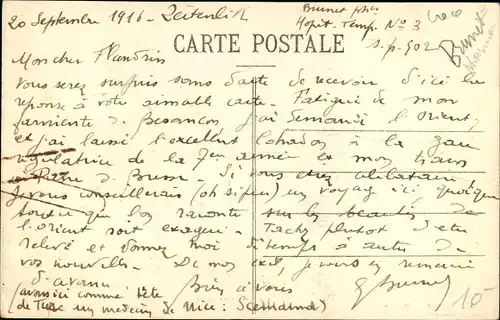 20 Septembre 1916 - Zeitenlik
Brunet phen
Hopit. Temp. No 3
s.p. 502
Brunet
CARTE POSTALE
Mon cher Flandrin
Vous serez surpris sans doute de recevoir d'ici la
reponse à votre aimable carte. Fatigué de mon
farniente de Besançon j'ai demandé l'orient,
et j'ai laissé l'excellent à la gare
régulatrice de la 7eme armée et mes
Si vous étiez célibataire
je vous conseillerais (oh si peu) un voyage ici quoique
tout ce que l'on raconte sur les beautés de
l'orient soit exagéré. Tachez plutot d'etre
relevé et donnez moi de temps à autre de
vos nouvelles. De mon exil, je vous en remercie
d'avance Bien à vous
(avons ici comme tête G Brunet
de Turc un medecin de Nice: )
10-